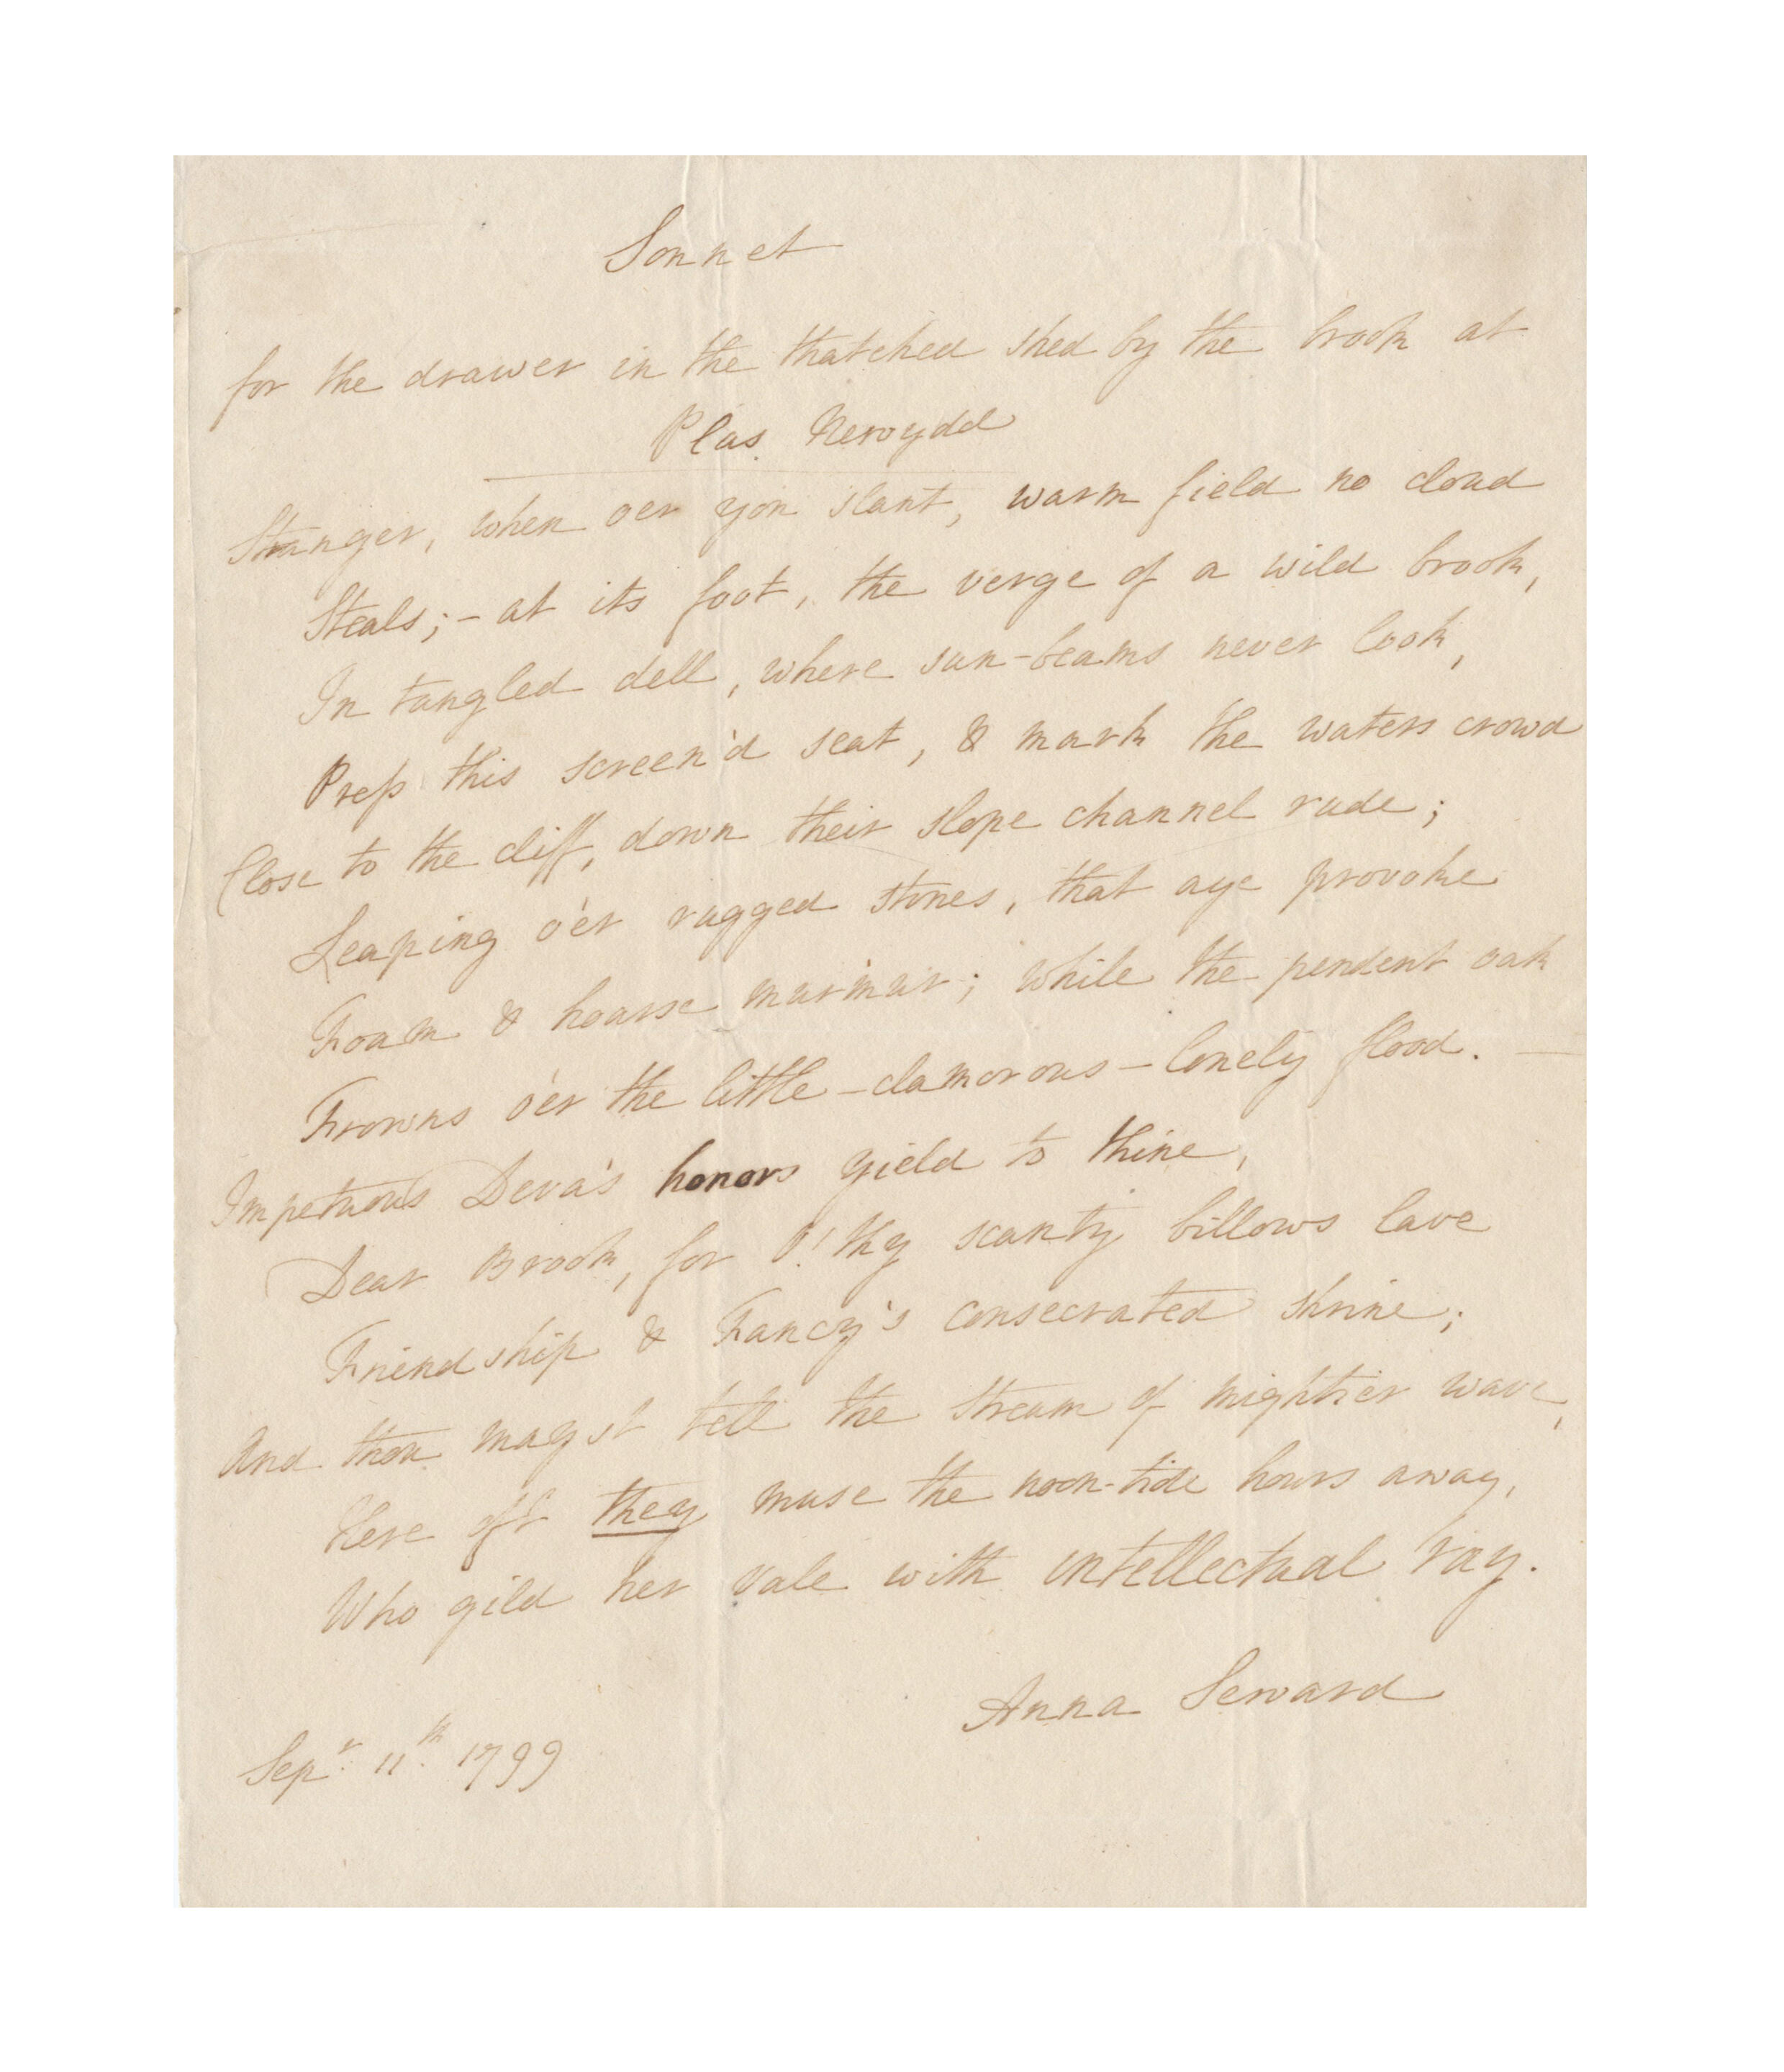 Sonnet
for the drawer in the thatched shed by the brook at
Plas Newydd
Stranger, when oer yon slant, warm field no cloud
Steals; - at its foot, the verge of a wild brook,
In tangled dell, where sun-beams never look,
Press this screen'd seat, & mark the waters crowd
Close to the cliff, down their slope channel rude;
Leaping o'er rugged stones, that aye provoke
Foam & hoarse murmur; while the pendent oak
Frowns o'er the little - clamorous - lonely flood. —
Impetuous Deva's honors yield to thine,
Dear Brook, for O! thy scanty billows lave
Friendship & Fancy's consecrated shrine;
And thou mayst tell the stream of mightier wave,
Here oft they muse the noon-tide hours away,
Who gild her vale with intellectual ray.
Anna Seward
Sepr. 11th. 1799